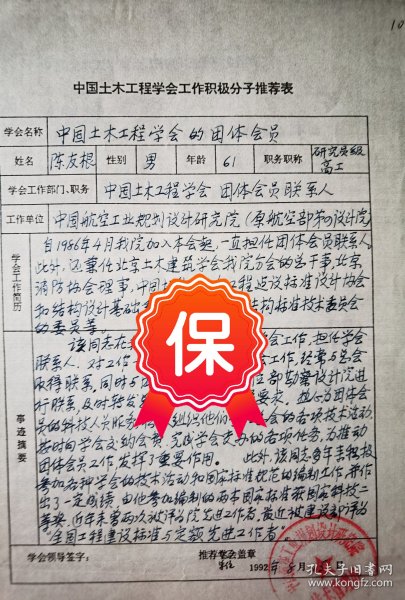 10
中国土木工程学会工作积极分子推荐表
学会名称 中国土木工程学会的团体会员
姓名 陈友根 性别 男 年龄 61 职务职称 研究员级高工
学会工作部门、职务 中国土木工程学会 团体会员联系人
工作单位 中国航空工业规划设计研究院(原航空部第四设计院)
学会工作简历
自1986年4月我院加入本会起,一直担任团体会员联系人。
此外,还兼任北京土木建筑学会我院分会的总干事北京
消防协会理事,中国 工程 设标准设计协会
和结构设计基础 结构标准技术委员会
的委员等。
事迹摘要
该同志在 会工作,担任学会
联系人,对工作 工作,经常与总会
取得联系,同时与 部勘察设计院进
行联系,及时转发 要求,担任为团体会
员的科技人员服务 组织他们 会的各项技术活动
按时向学会交纳会费,完成学会交办的各项任务,为推动
团体会员工作,发挥了重要作用。 此外,该同志多年来积极
参加各种学会的技术活动和国家标准规范的编制工作,并作
出了一定成绩,由他参加编制的两本国家标准获国家科技二
等奖,近年来曾两次被评为院先进工作者,最近被建设部评为
“全国工程建设标准与定额先进工作者”。
学会领导签字: 推荐学会盖章
单位 1992年8月
保
孔夫子旧书网
www.kongfz.com